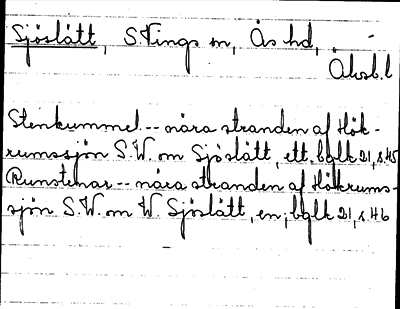 Sjöslätt, S. Vings sn, Ås hd,
Älvsb. l
Stenkummel -- nära stranden af Hök-
rumssjön S.W. om Sjöslätt, ett, bglk 21, s.45
Runstenar -- nära stranden af Hökrums-
sjön S.W. om W. Sjöslätt, en, bglk 21, s.46